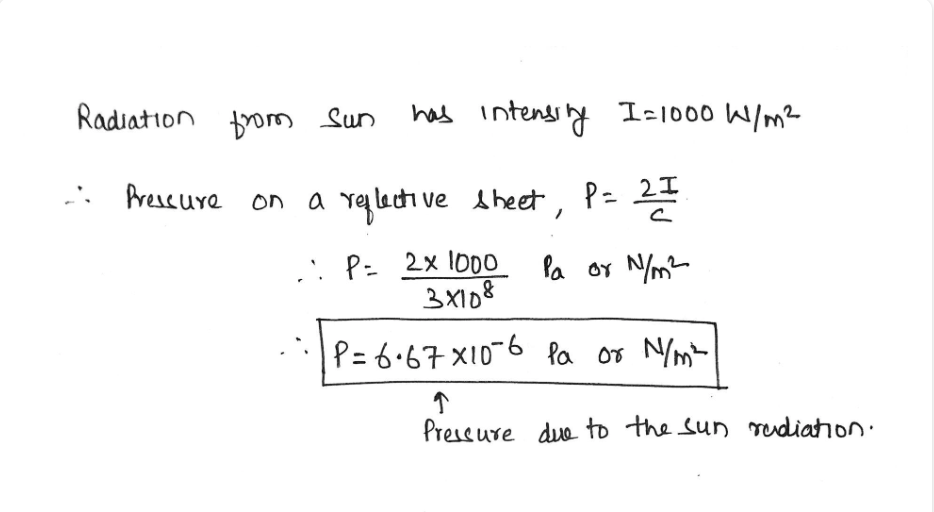 Radiation from Sun has intensity I=1000 W/m²
∴ Pressure on a reflective sheet, P= 2I/c
∴ P= 2×1000/3×10⁸ Pa or N/m²
∴ P=6.67×10⁻⁶ Pa or N/m²
↑
Pressure due to the sun radiation.